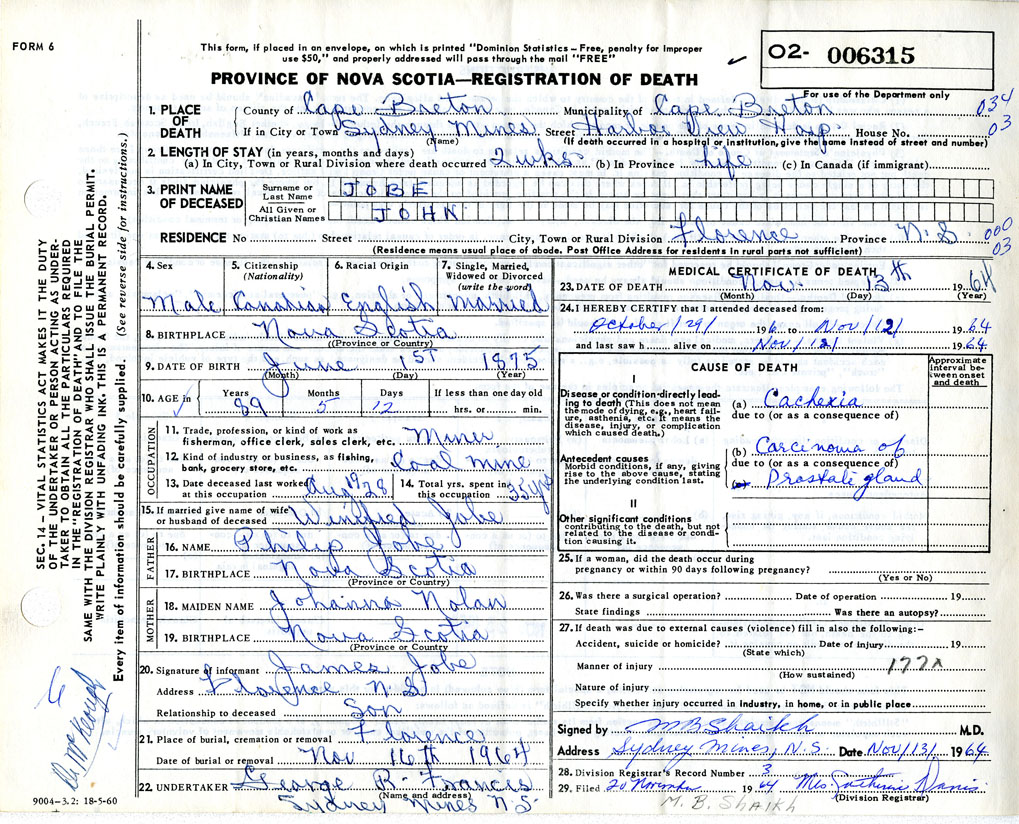 FORM 6
This form, if placed in an envelope, on which is printed "Dominion Statistics – Free, penalty for improper
use $50," and properly addressed will pass through the mail "FREE"
PROVINCE OF NOVA SCOTIA—REGISTRATION OF DEATH
O2- 006315
For use of the Department only
034
03
1. PLACE OF DEATH
County of Cape Breton Municipality of Cape Breton
If in City or Town Sydney Mines Street Harbor View Hosp. House No.
(Name) (If death occurred in a hospital or institution, give the name instead of street and number)
2. LENGTH OF STAY (in years, months and days)
(a) In City, Town or Rural Division where death occurred 2 wks (b) in Province Life (c) In Canada (if immigrant)
3. PRINT NAME OF DECEASED
Surname or Last Name JOBE
All Given or Christian Names JOHN
RESIDENCE No Street City, Town or Rural Division Florence Province N.S.
000
03
(Residence means usual place of abode. Post Office Address for residents in rural parts not sufficient)
4. Sex
Male
5. Citizenship (Nationality)
Canadian
6. Racial Origin
English
7. Single, Married, Widowed or Divorced (write the word)
Married
8. BIRTHPLACE Nova Scotia
(Province or Country)
9. DATE OF BIRTH June 1ST 1875
(Month) (Day) (Year)
10. AGE in Years 89 Months 5 Days 12 If less than one day old hrs. or min.
OCCUPATION
11. Trade, profession or kind of work as fisherman, office clerk, sales clerk, etc. Miner
12. Kind of industry or business, as fishing, bank, grocery store, etc. Coal mine
13. Date deceased last worked at this occupation Aug 1928
14. Total yrs. spent in this occupation 35 yrs
15. If married give name of wife or husband of deceased Winifred Jobe
FATHER
16. NAME Philip Jobe
17. BIRTHPLACE Nova Scotia
(Province or Country)
MOTHER
18. MAIDEN NAME Johanna Nolan
19. BIRTHPLACE Nova Scotia
(Province or Country
20. Signature of informant James Jobe
Address Florence N.S.
Relationship to deceased Son
21. Place of burial, cremation or removal Florence
Date of burial or removal Nov 16th 1964
22. UNDERTAKER George R. Francis
(Name and address)
Sydney Mines N.S.
9004-3.2: 18-5-60
MEDICAL CERTIFICATE OF DEATH
23. DATE OF DEATH Nov. 13th 1964
(Month) (Day) (Year)
24. I HEREBY CERTIFY that I attended deceased from:
October/29/ 196 to Nov/12/ 1964
and last saw h alive on Nov/12/ 1964
CAUSE OF DEATH
Approximate interval between onset and death
I
Disease or condition directly leading to death (This does not mean the mode of dying, e.g., heart failure, asthenia, etc. It means the disease, injury, or complication which caused death.)
(a) Cachexia
due to (or as a consequence of)
Antecedent causes
Morbid conditions, if any, giving rise to the above cause, stating the underlying condition last.
(b) Carcinoma of
due to (or as a consequence of)
Prostate gland
II
Other significant conditions contributing to the death, but not related to the disease or condition causing it.
25. If a woman, did the death occur during
pregnancy or within 90 days following pregnancy?
(Yes or No)
26. Was there a surgical operation? Date of operation 19
State findings Was there an autopsy?
27. If death was due to external causes (violence) fill in also the following:–
Accident, suicide or homicide? Date of injury 19
(State which)
Manner of injury 177X
(How sustained)
Nature of injury
Specify whether injury occurred in industry, in home, or in public place
Signed by M B Shaikh M.D.
Address Sydney Mines, N.S. Date Nov/13/ 1964
28. Division Registrar's Record Number 3
29. Filed 20 November 1964 Mrs Catherine Davis
(Division Registrar)
M. B. SHAIKH
SEC. 14 – VITAL STATISTICS ACT MAKES IT THE DUTY
OF THE UNDERTAKER OR PERSON ACTING AS UNDER-
TAKER TO OBTAIN ALL THE PARTICULARS REQUIRED
IN THE "REGISTRATION OF DEATH" AND TO FILE THE
SAME WITH THE DIVISION REGISTRAR WHO SHALL ISSUE THE BURIAL PERMIT.
WRITE PLAINLY WITH UNFADING INK. THIS IS A PERMANENT RECORD.
Every item of information should be carefully supplied. (See reverse side for instructions.)